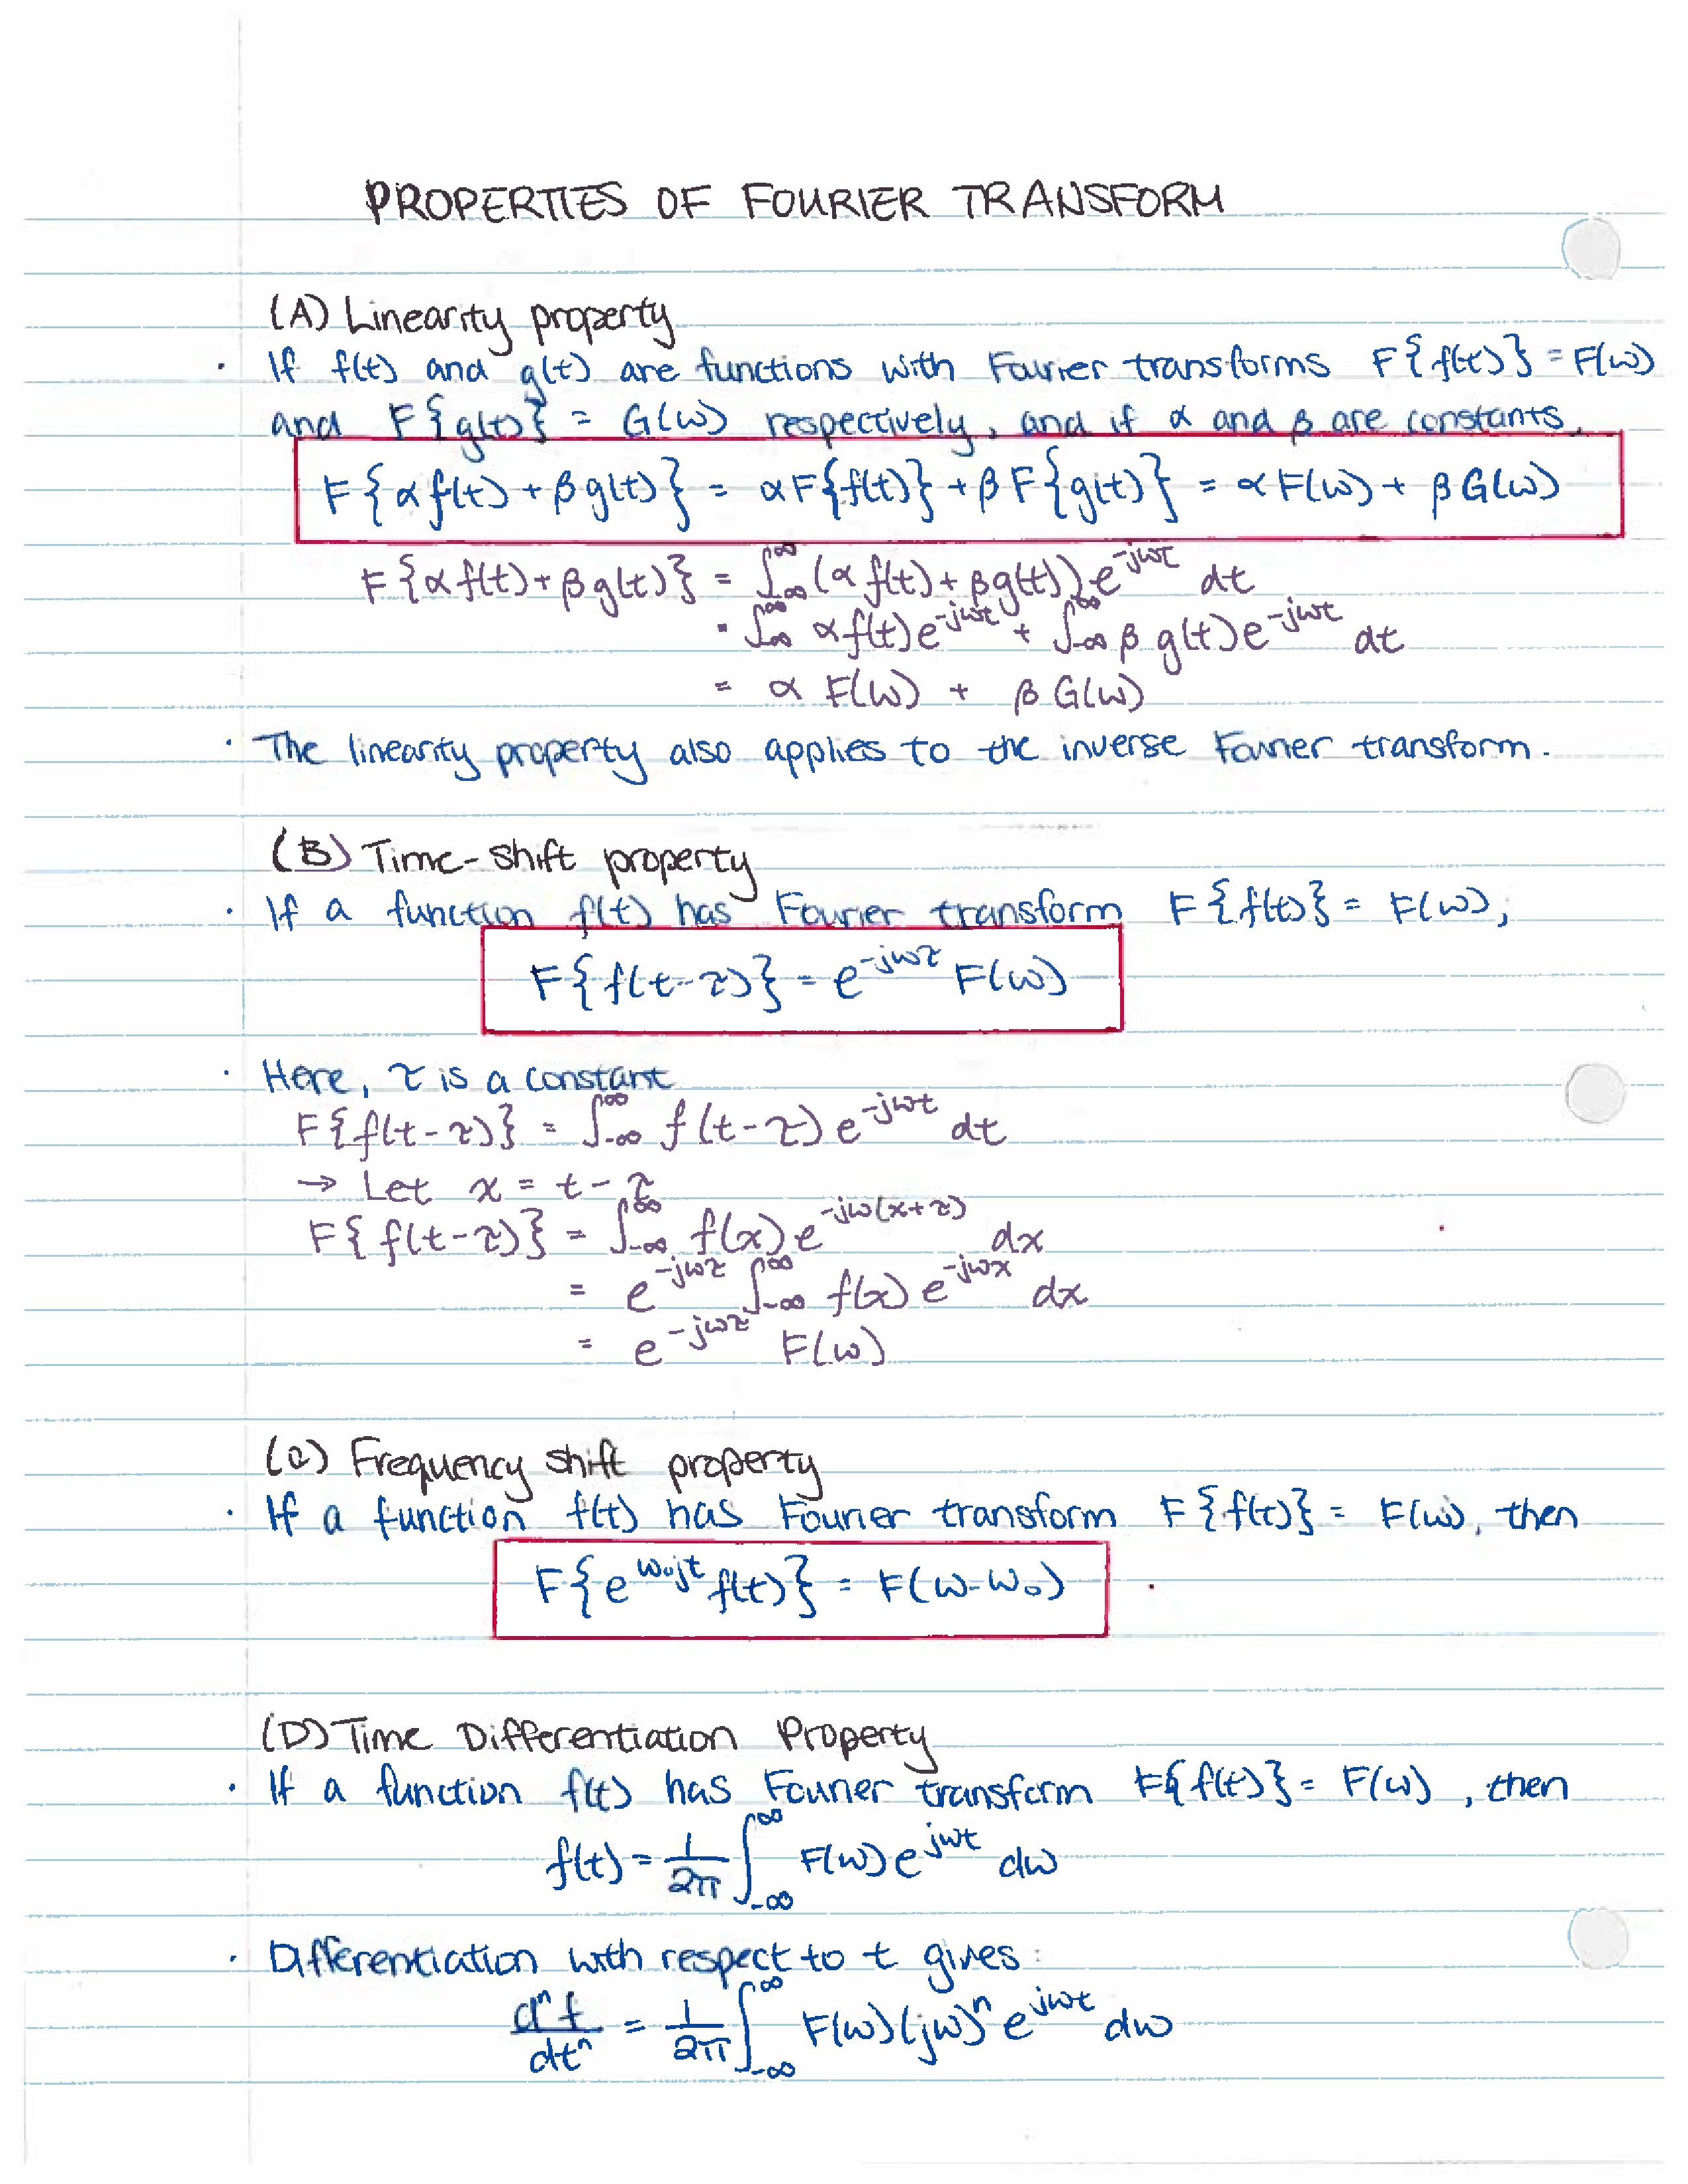 PROPERTIES OF FOURIER TRANSFORM
(A) Linearity property
· If f(t) and g(t) are functions with Fourier transforms F{f(t)} = F(ω)
and F{g(t)} = G(ω) respectively, and if α and β are constants.
F{αf(t) + βg(t)} = αF{f(t)} + βF{g(t)} = αF(ω) + βG(ω)
F{αf(t) + βg(t)} = ∫_{-∞}^{∞} (αf(t) + βg(t)) e^{-jωt} dt
= ∫_{-∞}^{∞} αf(t)e^{-jωt} + ∫_{-∞}^{∞} β g(t)e^{-jωt} dt
= α F(ω) + β G(ω)
· The linearity property also applies to the inverse Fourier transform.
(B) Time-shift property
· If a function f(t) has Fourier transform F{f(t)} = F(ω),
F{f(t-τ)} = e^{-jωτ} F(ω)
· Here, τ is a constant
F{f(t-τ)} = ∫_{-∞}^{∞} f(t-τ) e^{-jωt} dt
→ Let x = t - τ
F{f(t-τ)} = ∫_{-∞}^{∞} f(x) e^{-jω(x+τ)} dx
= e^{-jωτ} ∫_{-∞}^{∞} f(x) e^{-jωx} dx
= e^{-jωτ} F(ω)
(C) Frequency shift property
· If a function f(t) has Fourier transform F{f(t)} = F(ω), then
F{e^{ω₀jt} f(t)} = F(ω-ω₀)
(D) Time Differentiation Property
· If a function f(t) has Fourier transform F{f(t)} = F(ω), then
f(t) = 1/2π ∫_{-∞}^{∞} F(ω) e^{jωt} dω
· Differentiation with respect to t gives:
dⁿf/dtⁿ = 1/2π ∫_{-∞}^{∞} F(ω)(jω)ⁿ e^{jωt} dω